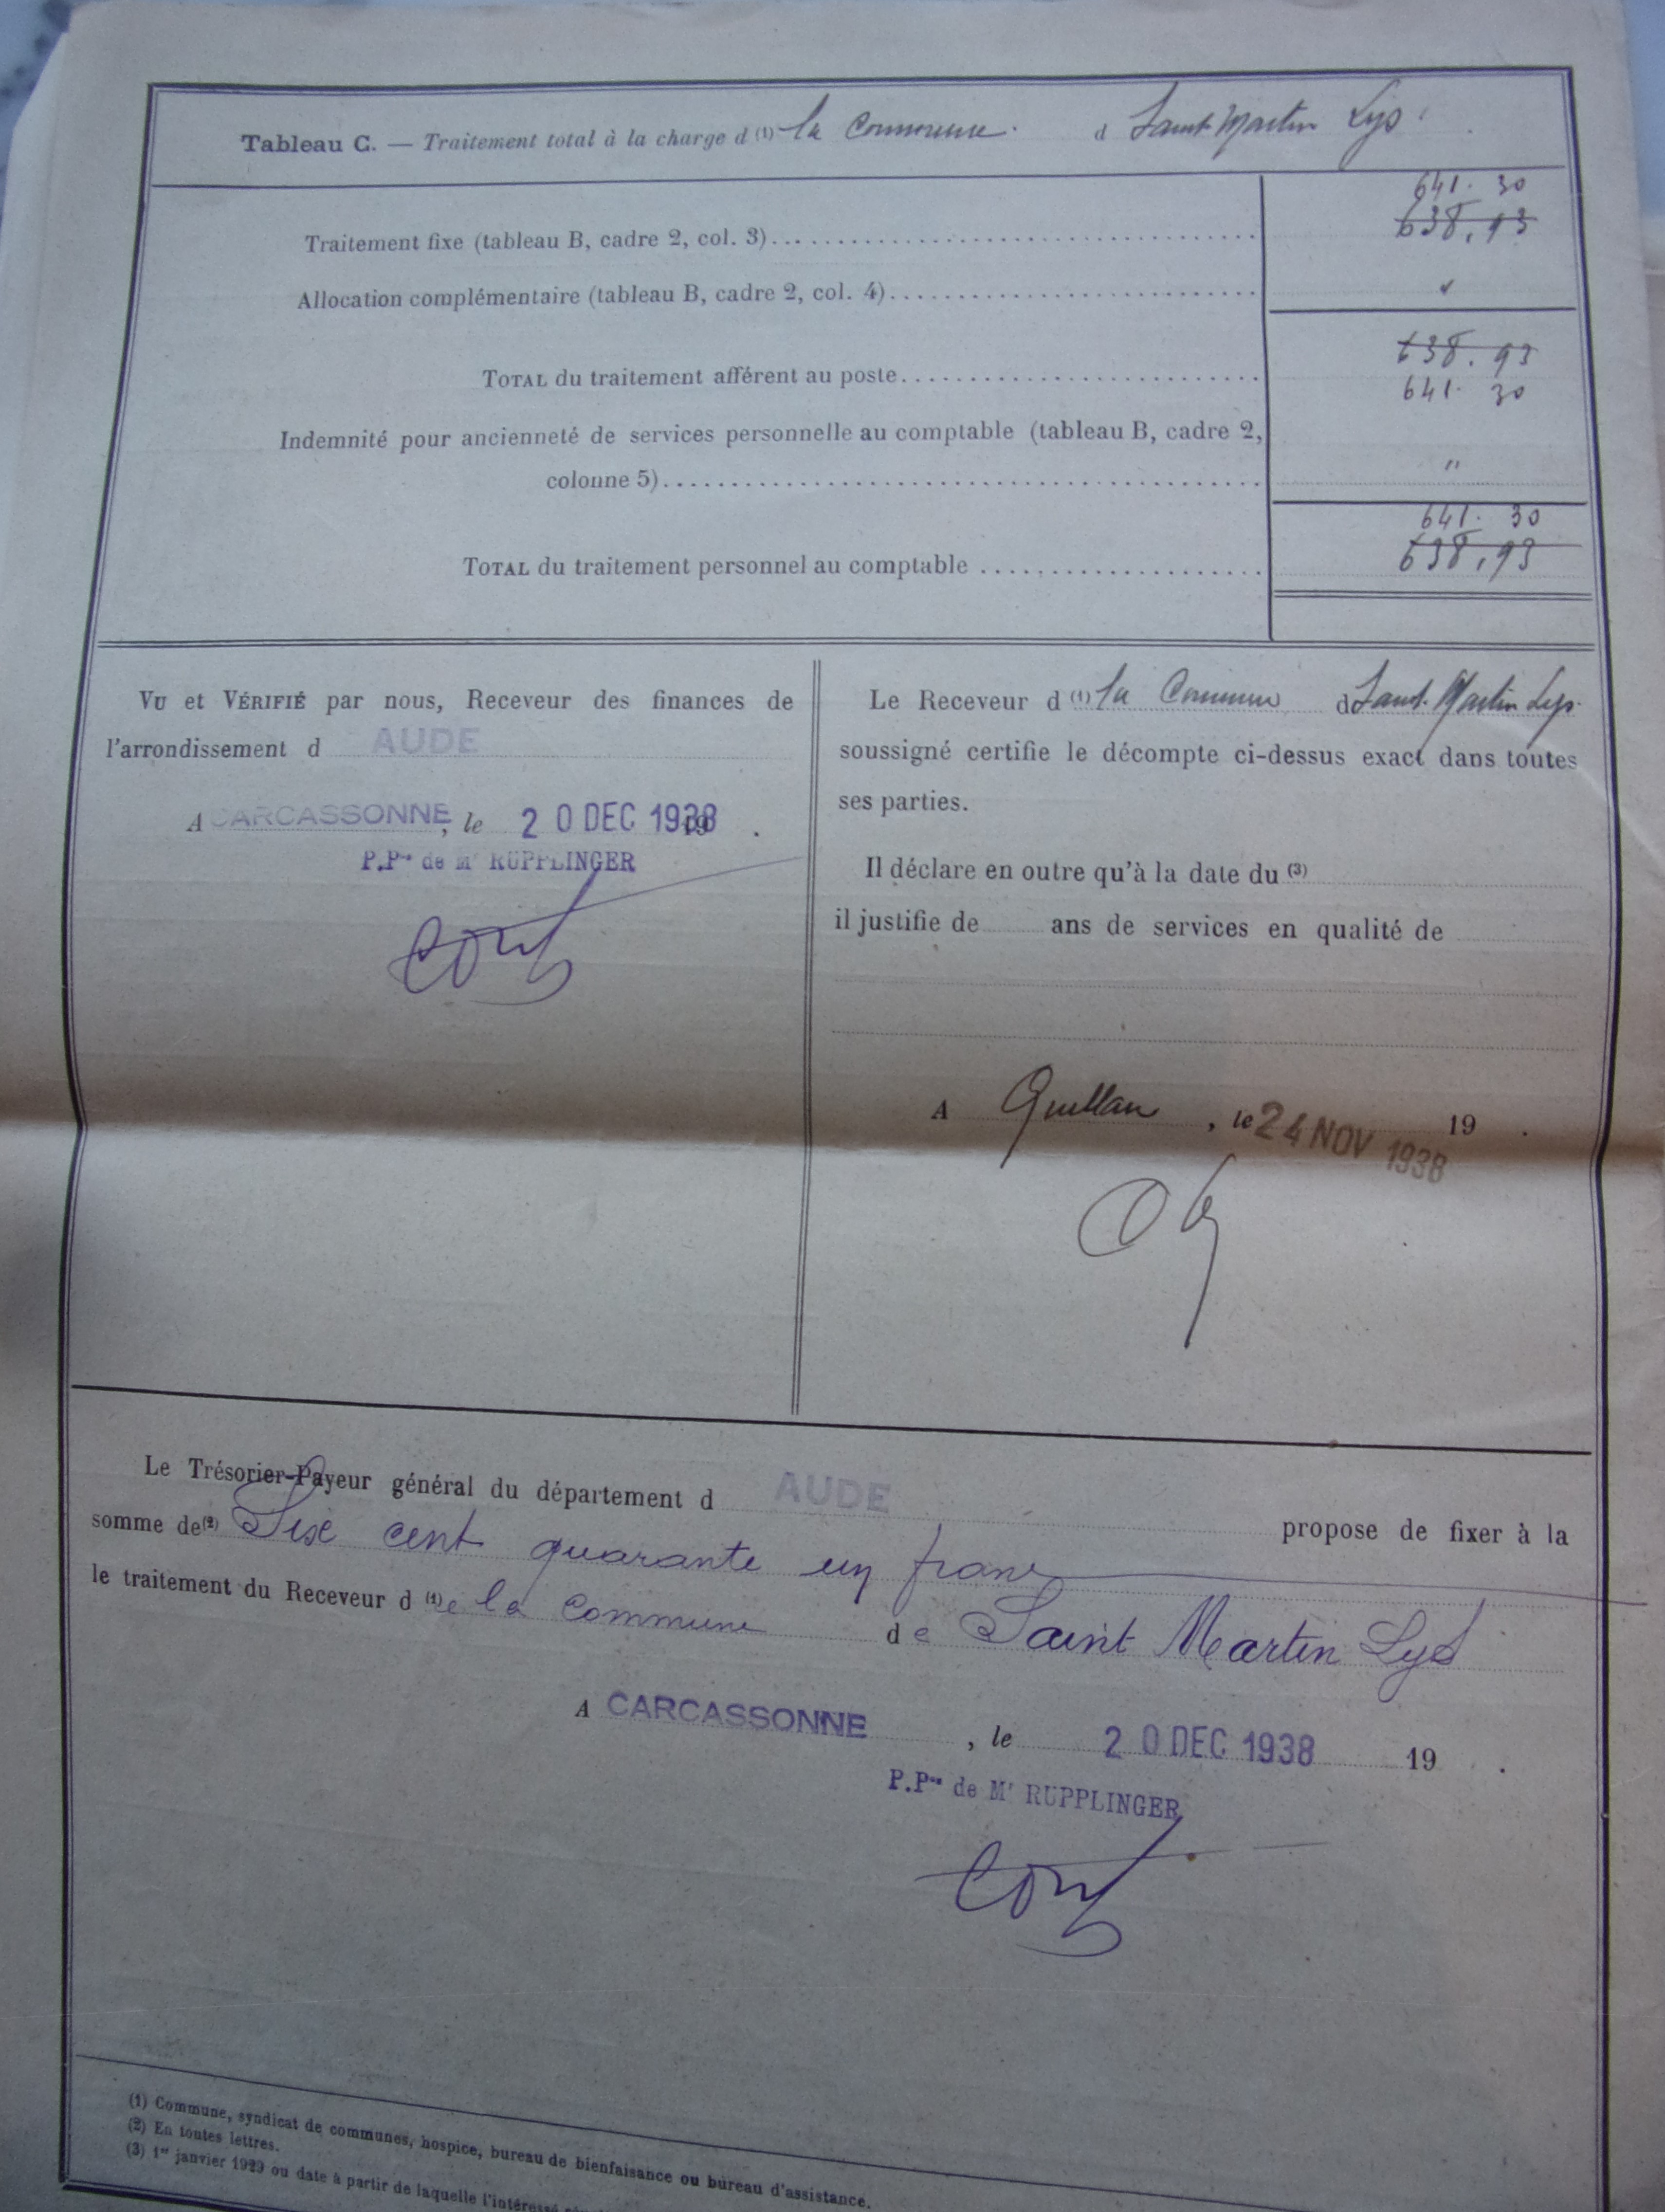 Tableau C. — Traitement total à la charge d (1) la Commune. d Saint Martin Lys
641. 30
Traitement fixe (tableau B, cadre 2, col. 3) 638,93
Allocation complémentaire (tableau B, cadre 2, col. 4)
638.93
TOTAL du traitement afférent au poste
641. 30
Indemnité pour ancienneté de services personnelle au comptable (tableau B, cadre 2,
colonne 5) "
641. 30
TOTAL du traitement personnel au comptable 638,93
VU et VÉRIFIÉ par nous, Receveur des finances de
l'arrondissement d AUDE
A CARCASSONNE, le 20 DEC 1938 19 .
P.Pon de Mr RUPPLINGER
Le Receveur d (1) la Commune d Saint. Martin Lys
soussigné certifie le décompte ci-dessus exact dans toutes
ses parties.
Il déclare en outre qu'à la date du (3)
il justifie de ans de services en qualité de
A Quillan, le 24 NOV 1938 19 .
Le Trésorier-Payeur général du département d AUDE propose de fixer à la
somme de (2) Six cent quarante un francs
le traitement du Receveur d (1) e la commune de Saint Martin Lys
A CARCASSONNE, le 20 DEC 1938 19 .
P.Pon de Mr RUPPLINGER
(1) Commune, syndicat de communes, hospice, bureau de bienfaisance ou bureau d'assistance.
(2) En toutes lettres.
(3) 1er janvier 1929 ou date à partir de laquelle l'intéressé